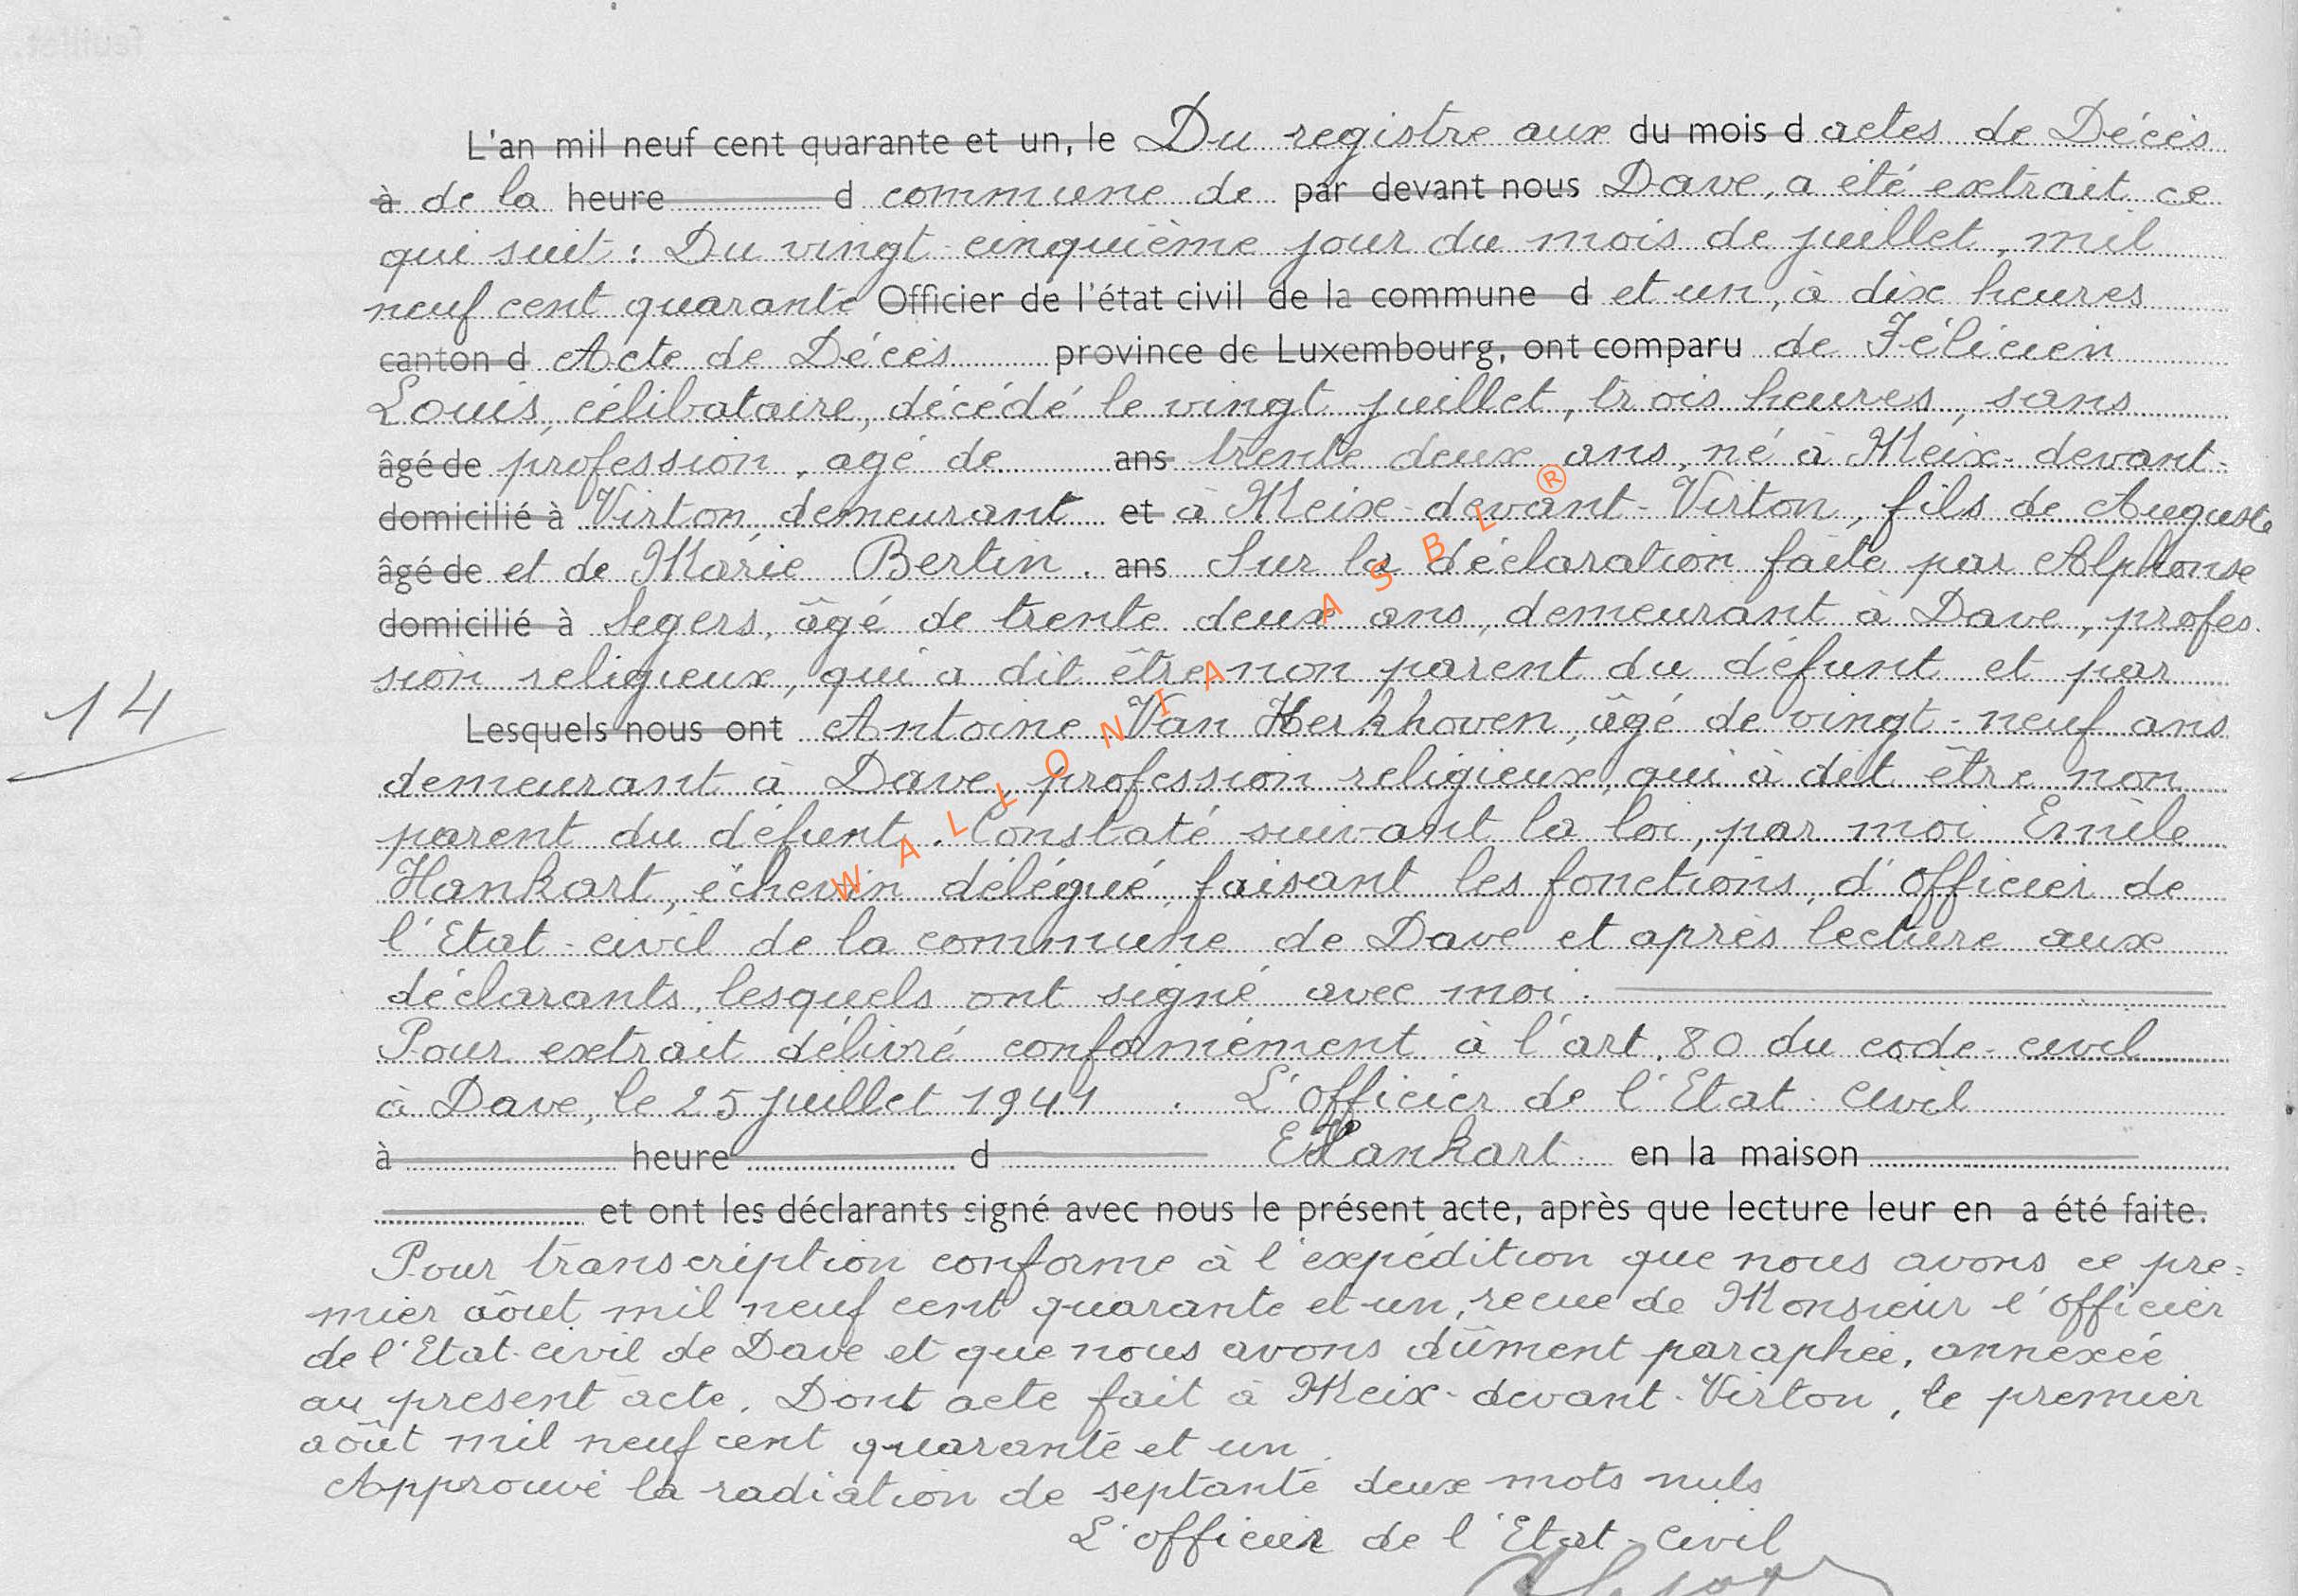 L'an mil neuf cent quarante et un, le Du registre aux du mois d actes de Décès
à de la heure d commune de par devant nous Dave, a été extrait ce
qui suit : Du vingt-cinquième jour du mois de juillet, mil
neuf cent quarante Officier de l'état civil de la commune d et un, à dix heures
canton d Acte de Décès province de Luxembourg, ont comparu de Félicien
Louis, célibataire, décédé le vingt juillet, trois heures, sans
âgé de profession, agé de ans trente deux ans, né à Meix-devant-
domicilié à Virton, demeurant et à Meix-devant-Virton, fils de Auguste
âgé de et de Marie Bertin. ans Sur la déclaration faite par Alphonse
domicilié à Segers, âgé de trente deux ans, demeurant à Dave, profes-
sion religieux, qui a dit être non parent du défunt et par
14
Lesquels nous ont Antoine Van Herkhoven, âgé de vingt-neuf ans
demeurant à Dave, profession religieux, qui à dit être non
parent du défunt. Constaté suivant la loi, par moi Emile
Hankart, échevin délégué, faisant les fonctions, d'officier de
l'Etat-civil de la commune de Dave et après lecture aux
déclarants, lesquels ont signé avec moi.
Pour extrait délivré confomément à l'art. 80 du code-civil
à Dave, le 25 juillet 1941. L'officier de l'Etat-Civil
à heure d EHankart. en la maison
et ont les déclarants signé avec nous le présent acte, après que lecture leur en a été faite.
Pour transcription conforme à l'expédition que nous avons ce pre=
mier août mil neuf cent quarante et un, recue de Monsieur l'officier
de l'Etat-civil de Dave et que nous avons dûment paraphée, annexée
au présent acte. Dont acte fait à Meix-devant-Virton, le premier
août mil neuf cent quarante et un.
Approuvé la radiation de septante deux mots nuls
L'officier de l'Etat-Civil
WALLONIA ASBL ®